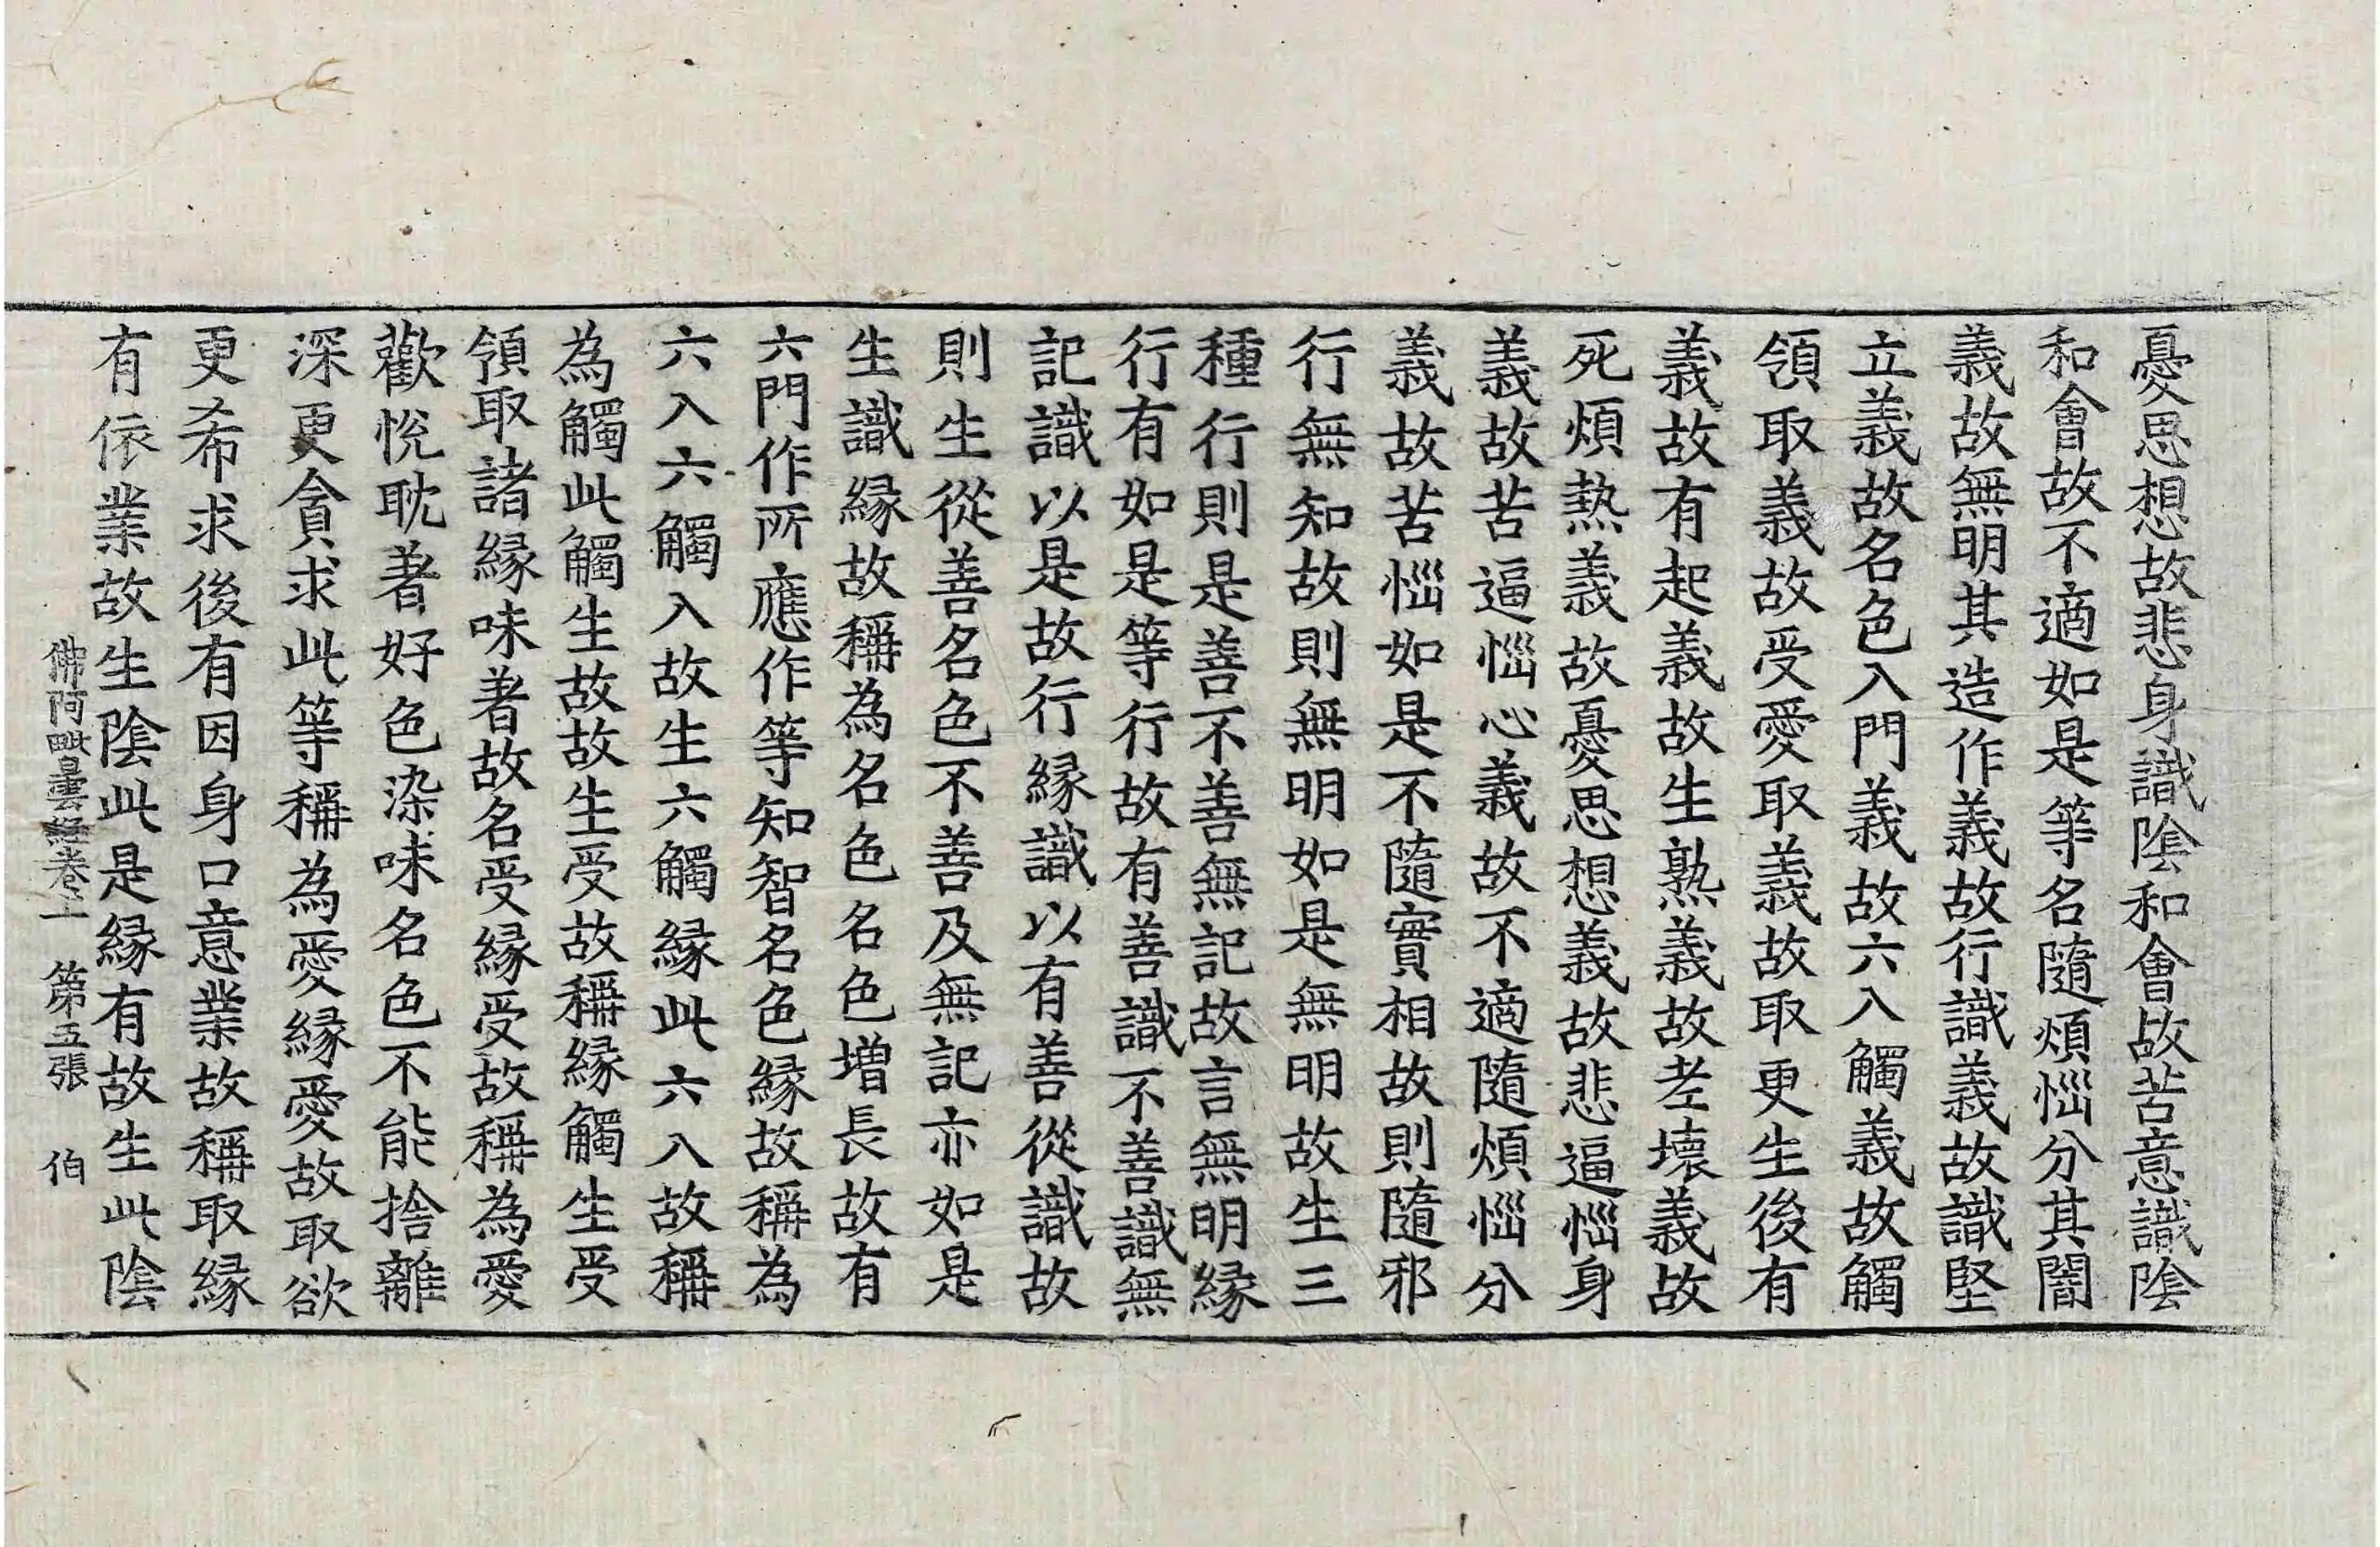 憂思想故悲身識陰和會故苦意識陰
和會故不適如是等名隨煩惱分其闇
義故無明其造作義故行識義故識堅
立義故名色入門義故六入觸義故觸
領取義故受愛取義故取更生後有
義故有起義故生熟義故老壞義故
死煩熱義故憂思想義故悲逼惱身
義故苦逼惱心義故不適隨煩惱分
義故苦惱如是不隨實相故則隨邪
行無知故則無明如是無明故生三
種行則是善不善無記故言無明緣
行有如是等行故有善識不善識無
記識以是故行緣識以有善從識故
則生從善名色不善及無記亦如是
生識緣故稱為名色名色增長故有
六門作所應作等知智名色緣故稱為
六入六觸入故生六觸緣此六入故稱
為觸此觸生故故生受故稱緣觸生受
領取諸緣味著故名受緣受故稱為愛
歡悅耽著好色染味名色不能捨離
深更貪求此等稱為愛緣愛故取欲
更希求後有因身口意業故稱取緣
有依業故生陰此是緣有故生此陰
佛阿毗曇經卷上　第五張　伯